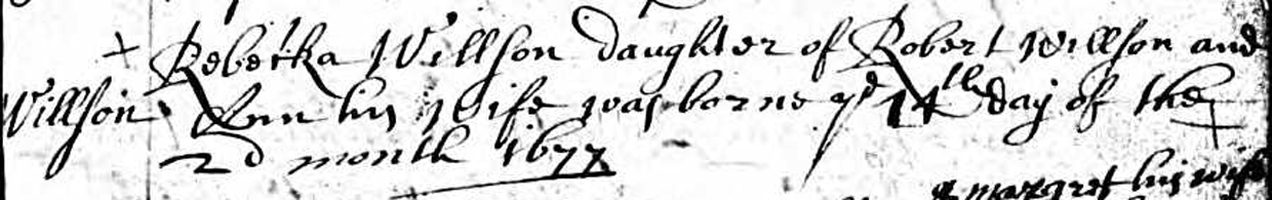 Rebecka Willson daughter of Robert Willson and
Willson Ann his Wife was borne yᵉ 14th day of the
2d month 1677
& margret his wife